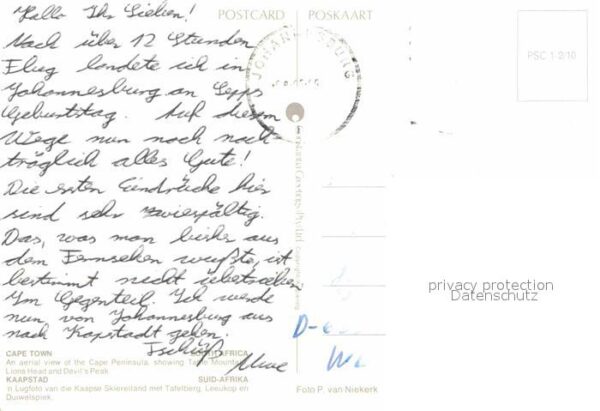 Hallo Ihr Lieben!
Nach über 12 Stunden
Flug landete ich in
Johannesburg an Sepps
Geburtstag. Auf diesem
Wege nun noch nach-
träglich alles Gute!
Die ersten Eindrücke hier
sind sehr zwiespältig.
Das, was man bisher aus
dem Fernsehen wußte, ist
bestimmt nicht übertrieben
Im Gegenteil. Ich werde
nun von Johannesburg aus
nach Kapstadt gehen.
Tschüß
Uwe
CAPE TOWN SOUTH AFRICA
An aerial view of the Cape Peninsula, showing Table Mountain,
Lions Head and Devil's Peak
KAAPSTAD SUID-AFRIKA
'n Lugfoto van die Kaapse Skiereiland met Tafelberg, Leeukop en
Duiwelspiek.
POSTCARD POSKAART
JOHANNESBURG
D-6
Foto P. van Niekerk
PSC 1-2/10
privacy protection
Datenschutz